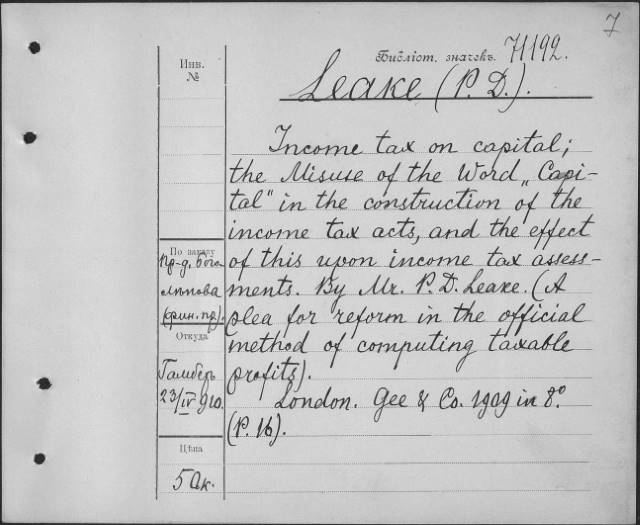 7
Библіот. значекъ. 71192.
Инв.
№
Leake (P. D.).
Income tax on capital;
the Misuse of the Word „Capi-
tal" in the construction of the
income tax acts, and the effect
of this upon income tax assess-
ments. By Mr. P. D. Leake. (A
plea for reform in the official
method of computing taxable
profits).
London. Gee & Co. 1909 in 8º.
(P. 16).
По заказу
пр-д. Бого
лѣпова
(фин. пр).
Откуда
Гамберъ
23/IV 910.
Цѣна
50к.